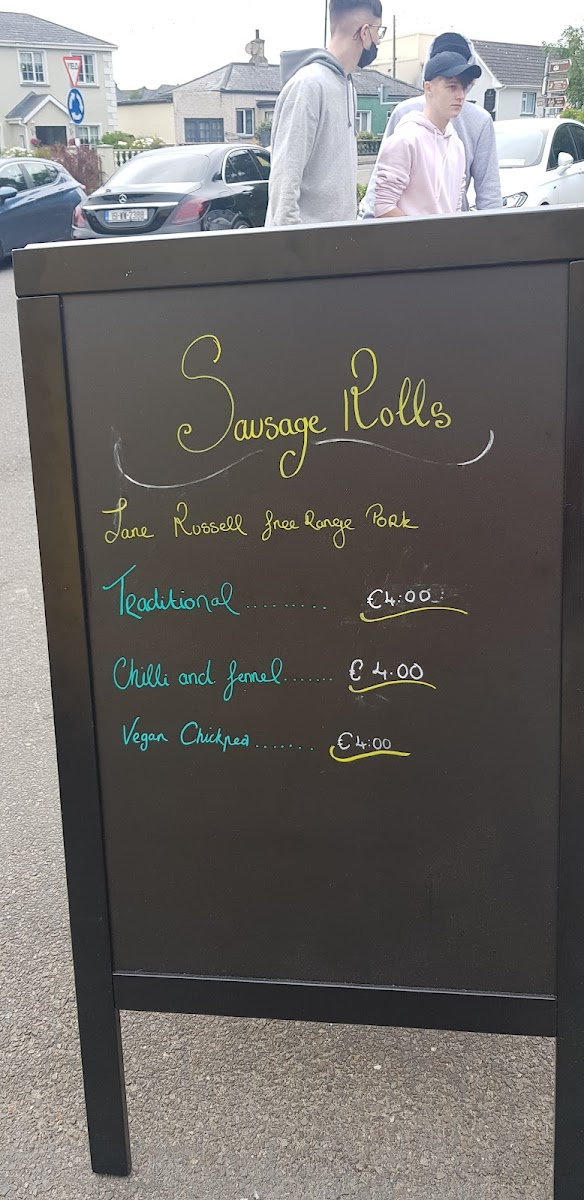 YIELD
151-WW-2388
Sausage Rolls
Jane Russell free Range Pork
Traditional ......... €4:00
Chilli and fennel....... € 4.00
Vegan Chickpea ....... €4:00